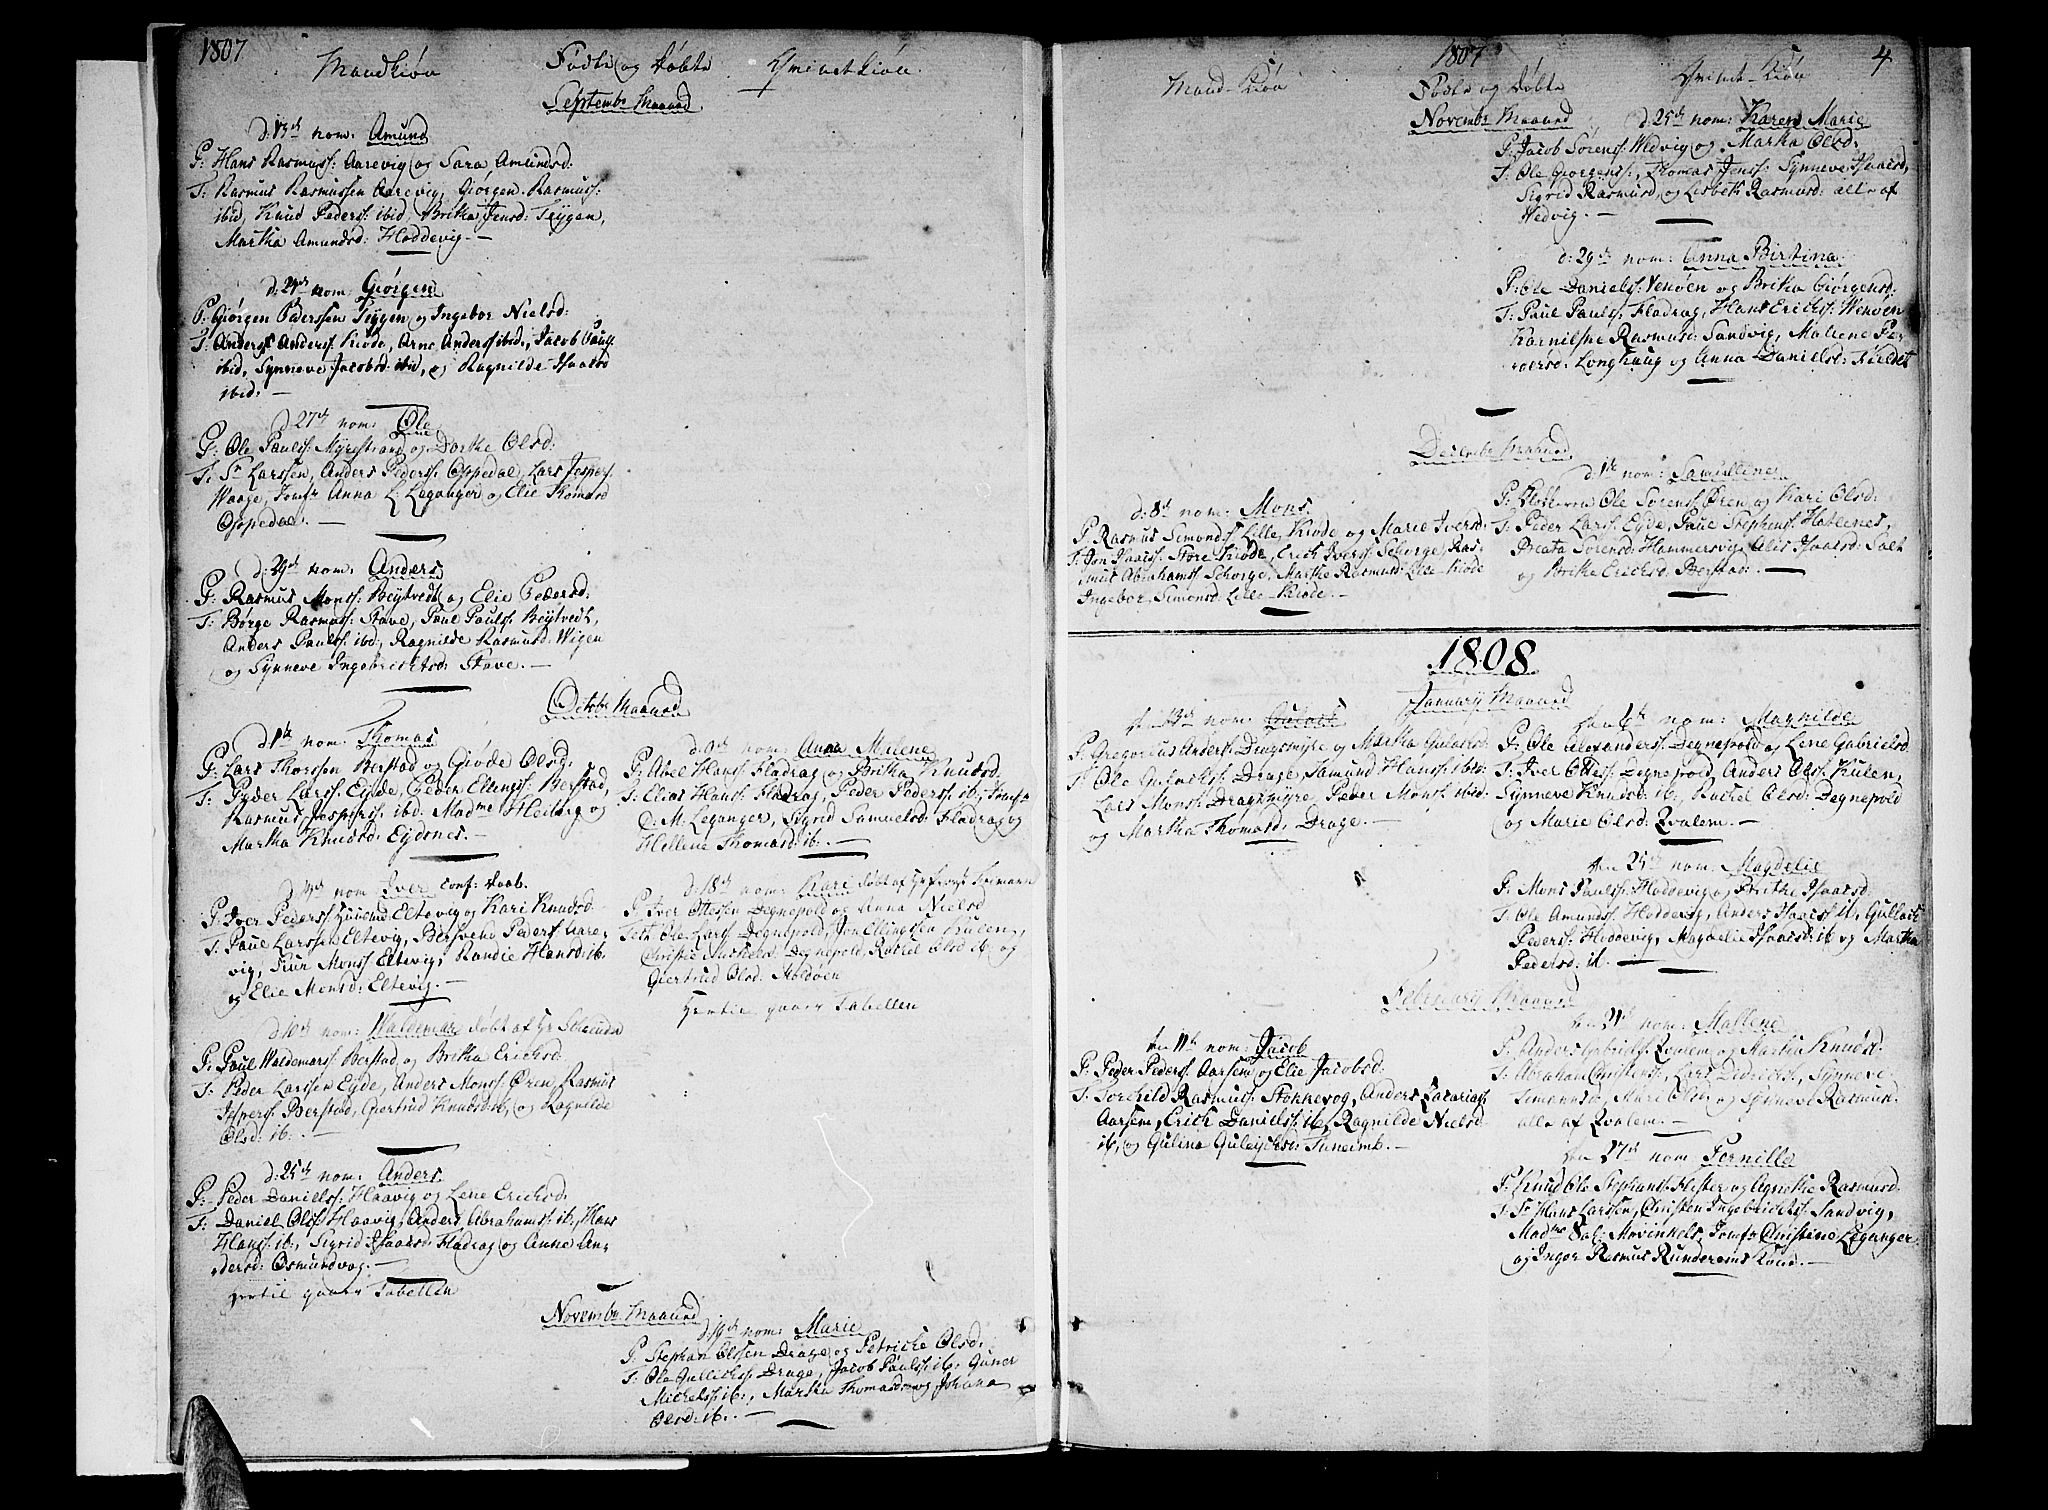 1807
Mandkiøn Fødte og døbte Qvindekiøn.
Septembr Maaned
d: 13de nom: Amund
P: Hans Rasmuss: Aarevig og Sara Amundsd:
T: Rasmus Rasmussen Aarevig, Giørgen Rasmuss:
ibid, Knud Peders: ibid, Britha Jensd: Teygen,
Martha Amundsd: Hoddevig.—
nom: Giørgen
P: Giørgen Pederssen Teygen og Ingebor Nielsd:
T: Anders Anderss: Kiøde, Arne Anderss: ibid:, Jacob Pauls:
ibid, Synneve Jacobsd: ibid, og Ragnilde Isaacsd
ibid:—
d: 27de nom: Ole
P: Ole Paulss: Myrestrand og Dorthe Olsd:
T: Sr Larssen, Anders Peders: Oppedal, Lars Jespers:
Waage, Jomfr Anna L: Leganger og Elie Thomasd
Oppedal.—
d: 29de nom: Anders
P: Rasmus Monss: Beytvedt og Elie Pedersd:
T: Børge Rasmus: Stave, Poul Pauls: Beytvedt,
Anders Paulss: ibd:, Ragnilde Rasmusd: Wigen
og Synneve Ingebrichtsd: Stave.—
Octobr Maaned
d: 1te nom: Thomas
P: Lars Thorssen Berstad og Giøde Olsd:
T: Peder Larss: Eyde, Peder Ellings: Berstad,
Rasmus Jespers: ibd: Madme Heiberg og
Martha Knudsd: Eydsnes.—
nom: Iver conf: Daab.
P: Iver Pederss: Eltevig og Kari Knudsd
T: Paul Larssen Eltevig, Bersvend Peders: Aare-
vig, Siur Monss: Eltevig, Randie Hansd: ib.
og Elie Monsd: Eltevig.—
d: 10de nom: Waldemar døbt af Hr
P: Paul Waldemars: Berstad og Britha Erichsd:
T: Peder Larssen Eyde, Anders Monss: Øren, Rasmus
Jespers: Berstad, Giertrud Knudsd: ib, og Ragnilde
Olsd: ib.—
d: 25de nom: Anders
P: Peder Daniels: Haavig og Lene Erichsd:
T: Daniel Olss: Haavig, Anders Abrahamss: ib:, Hans
Hanss: ib:, Sigrid Isaacsd: Fladrag og Anne An-
dersd: Osmundvog.—
Hertil gaaer Tabellen
d: 9de nom: Anna Malene
P: Abel Hanss: Fladrag og Britha Knudsd:
T: Elias Hanss: Fladrag, Peder Peders: ib:, Jomfr
D. M. Leganger, Sigrid Samuelsd: Fladrag og
Hellene Thomasd: ib.—
d: 18de nom: Kari døbt af Hr
P: Iver Ottesen Degnepold og Anna Nielsd
Test: Ole Larss: Degnepold, Jon Ellingssen Kulen,
Christie Degnepold, Rachel Olsd: ib og
Giertrud Olsd: Moldøen
Hertil gaaer Tabellen
Novembr Maaned
d: 19de nom: Marie
P: Stephan Olssen Drage og Petriche Olsd:
T: Ole Gullichs: Drage, Jacob Paulss: ib: Guner
Michelss: ib:, Martha Thomasd: og Johana
Olsd: ib.—
1807 4
Mand-Kiøn Fødte og døbte Qvinde-Kiøn
Novembr Maaned
d: 25de nom: Karen Marie
P: Jacob Sørenss: Wedvig og Martha Olsd:
T: Ole Giørgenss:, Thomas Jenss: Synneve Isaacsd,
Sigrid Rasmusd, og Lisbeth Rasmusd: alle af
Wedvig.—
d: 29de nom: Anna Birtina
P: Ole Danielss: Venøen og Britha Giørgensd:
T: Paul Paulss: Fladrag, Hans Erichs: Wenøen
Karnilsne Rasmusd: Sandvig, Malene Pe-
dersd: Longhaug og Anna Danielsd: Kieldet
Decembr Maaned
d: 8de nom: Mons
P. Rasmus Simonds: Lille Kiøde og Marie Iversd:
T: Jon Isaacss: Store Kiøde, Erich Iverss: Schorge, Ras-
mus Abrahamss: Schorge, Marthe Rasmusd: Lille Kiøde
Ingebor Simonsd: Lille-Kiøde.—
d: 1te nom: Samuelline
P: Ole Sørenss: Øren og Kari Olsd:
T: Peder Larss: Eyde, Paul Stephens: Hatlenes,
Beata Sørensd: Hammersvig, Alis Isaacsd: Salt
og Brithe Erichsd: Berstad:—
1808
January Maaned
den 13de nom: Gulach
P. Gregorius Anders: Dragsmyre og Martha Gulachsd:
T: Ole Gulachss: Drage, Samund Hanss: ibid:
Lars Monss: Dragsmyre, Peder Monss: ibid.
og Martha Thomasd: Drage.—
den 6te nom: Magnilde
P: Ole Alexanders: Degnepold og Lene Gabrielsd:
T: Iver Ottess: Degnepold, Anders Olss: Kulen,
Synneve Knudsd: ib, Rachel Olsd: Degnepold
og Marie Olsd: Qvalem.—
den 25de nom: Magdelie
P: Mons Paulss: Hoddevig og Brithe Isaacsd:
T: Ole Amundss: Hoddevig, Anders Isaacss: ib, Gullach
Peders: Hoddevig, Magdelie Isaacsd: ib og Martha
Pedersd: ib.—
February Maaned
den 11te nom: Jacob
P: Peder Peders: Aarsem og Elie Jacobsd:
T: Torchild Rasmuss: Stokkevog, Anders Zacariass:
Aarsem, Erich Danielss: ib, Ragnilde Nielsd
ib, og Gulina Guleichsd: Tuneimb.—
nom: Mallene
P: Anders Gabriels: Qvalem og Martha Knudsd:
T: Abraham Christens:, Lars Didrichs:, Synneve
Simonsd:, Kari Olsd: og Synneve Rasmusd:
alle af Qvalem.—
den 27de nom: Pernille
P: Knud Ole Stephans: Flister og Agnethe Rasmusd.
T: Sr Hans Larssen, Christen Ingebrictss: Sandvig,
Madme Sal: Movinkels, Jomfr Christine Leganger
og Inger Rasmus Rundereims Kone.—